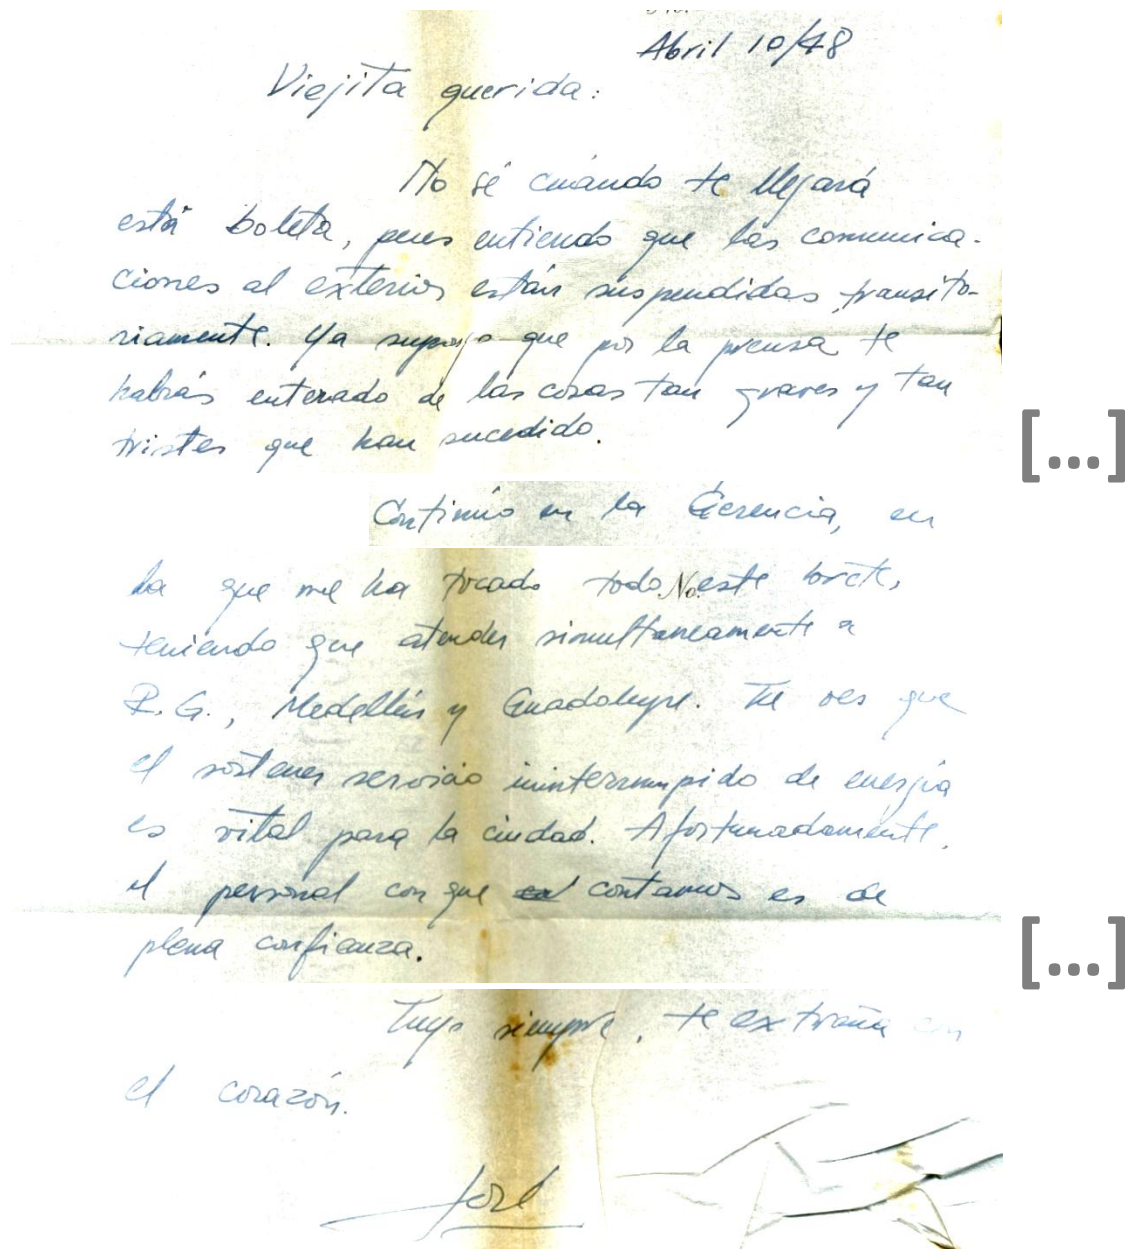 Abril 10/48
Viejita querida:
No sé cuándo te llegará
está boleta, pues entiendo que las comunica-
ciones al exterior están suspendidas transito-
riamente. Ya supongo que por la prensa te
habrás enterado de las cosas tan graves y tan
tristes que han sucedido.
[...]
Continúo en la Gerencia, en
la que me ha tocado todo No. este
teniendo que atender simultáneamente a
R.G., Medellín y Guadalupe. Tu ves que
el sostener servicio ininterrumpido de energía
es vital para la ciudad. Afortunadamente,
el personal con que contamos es de
plena confianza.
[...]
Tuyo siempre, te extraña con
el corazón.
José